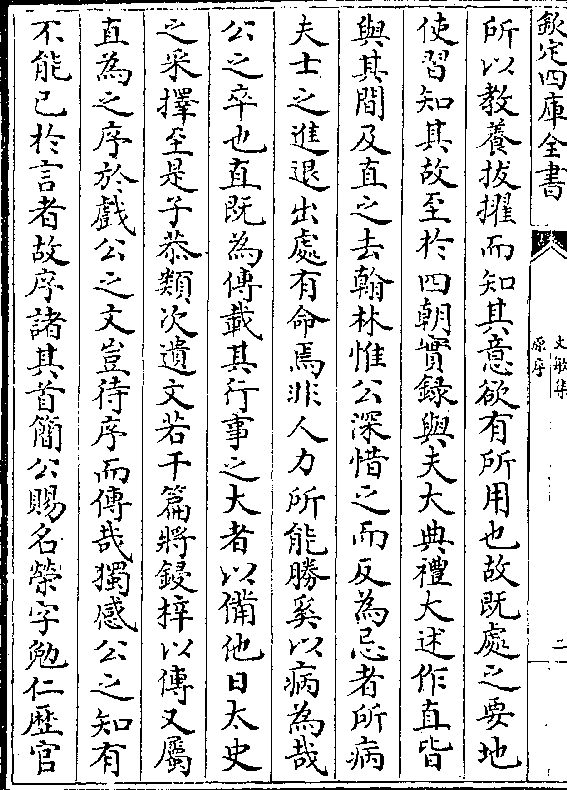 欽定四庫全書
文敏集
原序
二
所以教養拔擢而知其意欲有所用也故既處之要地
使習知其故至於四朝實録與夫大典禮大述作直皆
與其間及直之去翰林惟公深惜之而反為忌者所病
夫士之進退出處有命焉非人力所能勝奚以病為哉
公之卒也直既為傳載其行事之大者以備他日太史
之采擇至是子恭類次遺文若干篇將鋟梓以傳又屬
直為之序於戲公之文豈待序而傳哉獨感公之知有
不能已於言者故序諸其首簡公賜名榮字勉仁歴官